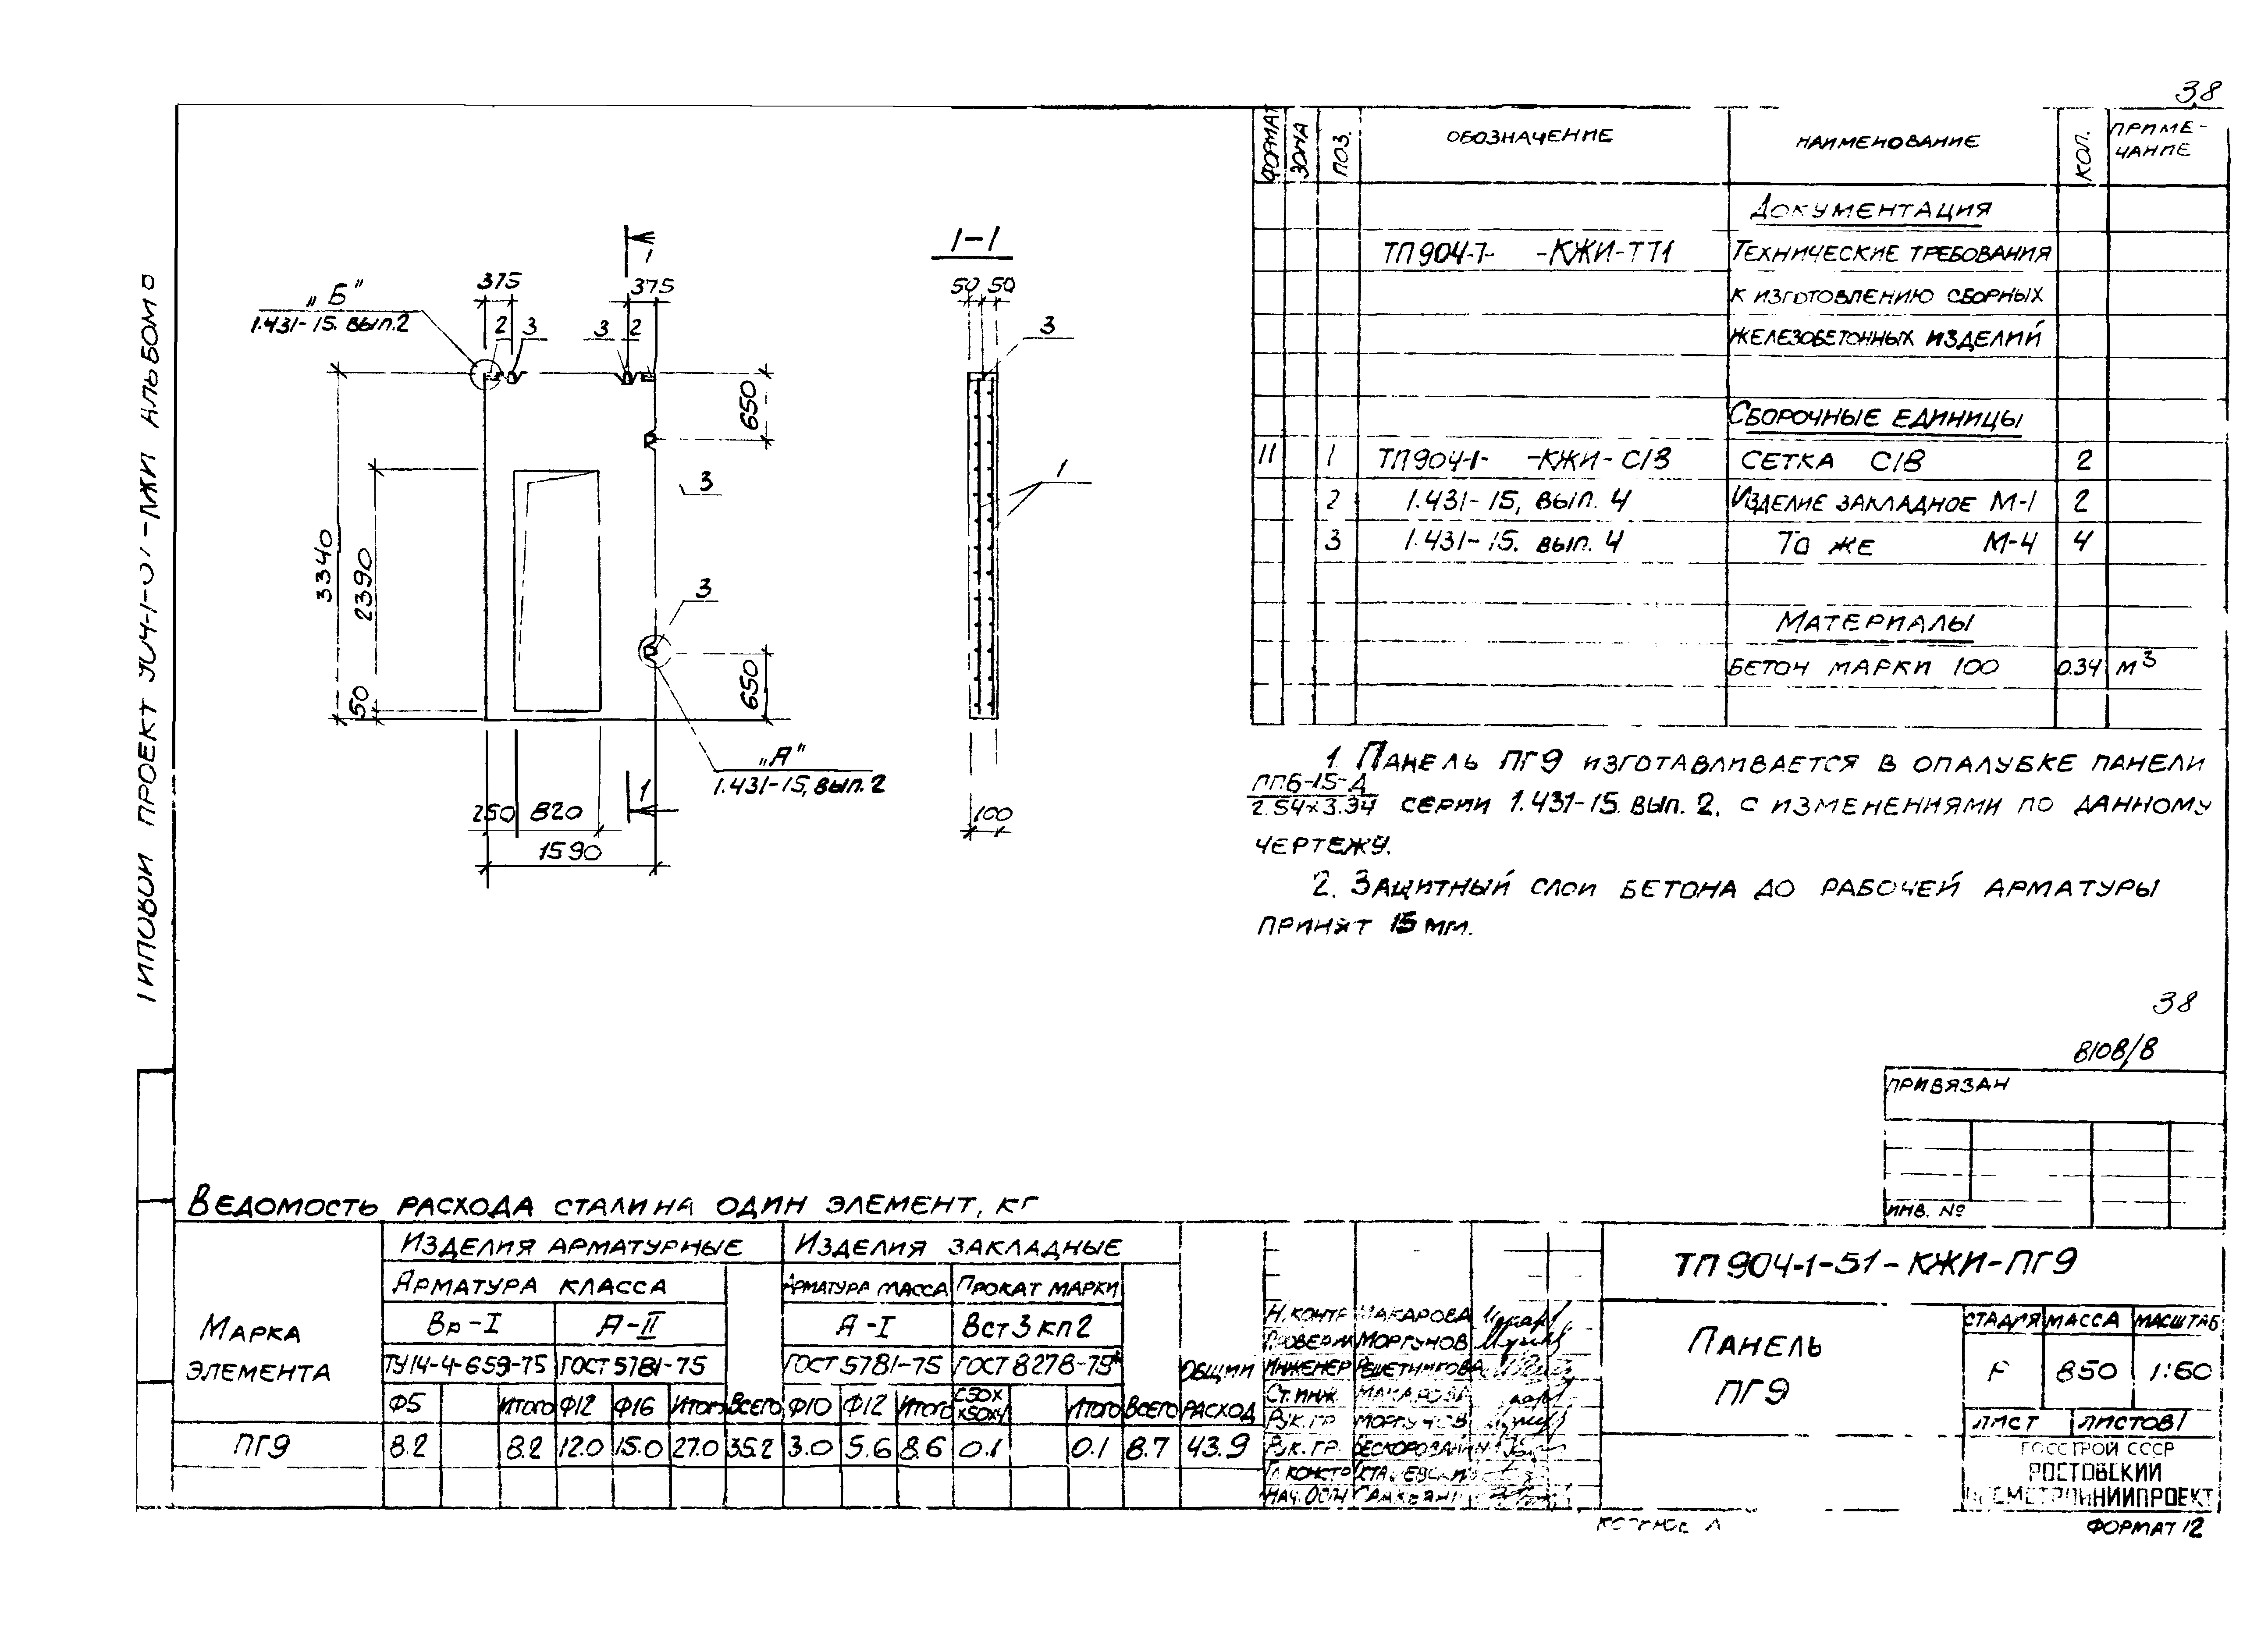 38
ФОРМАТ ЗОНА ПОЗ. ОБОЗНАЧЕНИЕ НАИМЕНОВАНИЕ КОЛ. ПРИМЕ-
ЧАНИЕ
ДОКУМЕНТАЦИЯ
ТП904-1- -КЖИ-ТТ1 ТЕХНИЧЕСКИЕ ТРЕБОВАНИЯ
К ИЗГОТОВЛЕНИЮ СБОРНЫХ
ЖЕЛЕЗОБЕТОННЫХ ИЗДЕЛИЙ
СБОРОЧНЫЕ ЕДИНИЦЫ
11 1 ТП904-1- -КЖИ-С18 СЕТКА С18 2
2 1.431-15, ВЫП. 4 ИЗДЕЛИЕ ЗАКЛАДНОЕ М-1 2
3 1.431-15. ВЫП. 4 ТО ЖЕ М-4 4
МАТЕРИАЛЫ
БЕТОН МАРКИ 100 0.34 М³
1. ПАНЕЛЬ ПГ9 ИЗГОТАВЛИВАЕТСЯ В ОПАЛУБКЕ ПАНЕЛИ
ПГ6-15-Д
2.54×3.34 СЕРИИ 1.431-15. ВЫП. 2. С ИЗМЕНЕНИЯМИ ПО ДАННОМУ
ЧЕРТЕЖУ.
2. ЗАЩИТНЫЙ СЛОЙ БЕТОНА ДО РАБОЧЕЙ АРМАТУРЫ
ПРИНЯТ 15 ММ.
ТИПОВОЙ ПРОЕКТ АЛЬБОМ
1
375 375
„Б"
1.431-15. ВЫП.2
2 3 3 2
650
3
3340
2390
50
3
650
„А"
1.431-15, ВЫП. 2
1
250 820
1590
1-1
50 50
3
1
100
38
8108/8
ПРИВЯЗАН
ИНВ. №
ВЕДОМОСТЬ РАСХОДА СТАЛИ НА ОДИН ЭЛЕМЕНТ, КГ
МАРКА
ЭЛЕМЕНТА
ИЗДЕЛИЯ АРМАТУРНЫЕ ИЗДЕЛИЯ ЗАКЛАДНЫЕ
АРМАТУРА КЛАССА АРМАТУРА МАССА ПРОКАТ МАРКИ
Вр-I А-II А-I ВСт3кп2
ТУ14-4-659-75 ГОСТ 5781-75 ГОСТ 5781-75 ГОСТ 8278-75*
ОБЩИЙ
РАСХОД
Ф5 ИТОГО Ф12 Ф16 ИТОГО ВСЕГО Ф10 Ф12 ИТОГО ИТОГО ВСЕГО
ПГ9 8.2 8.2 12.0 15.0 27.0 35.2 3.0 5.6 8.6 0.1 0.1 8.7 43.9
Н. КОНТР МАКАРОВА
ПРОВЕРИЛ МОРГУНОВ
ИНЖЕНЕР РЕШЕТНИКОВА
СТ. ИНЖ. МАКАРОВА
РУК. ГР МОРГУНОВ
РУК. ГР.
ГЛ КОНСТР
ТП904-1-51-КЖИ-ПГ9
ПАНЕЛЬ
ПГ9
СТАДИЯ МАССА МАСШТАБ
Р 850 1:60
ЛИСТ ЛИСТОВ 1
ГОССТРОЙ СССР
РОСТОВСКИЙ
ФОРМАТ 12